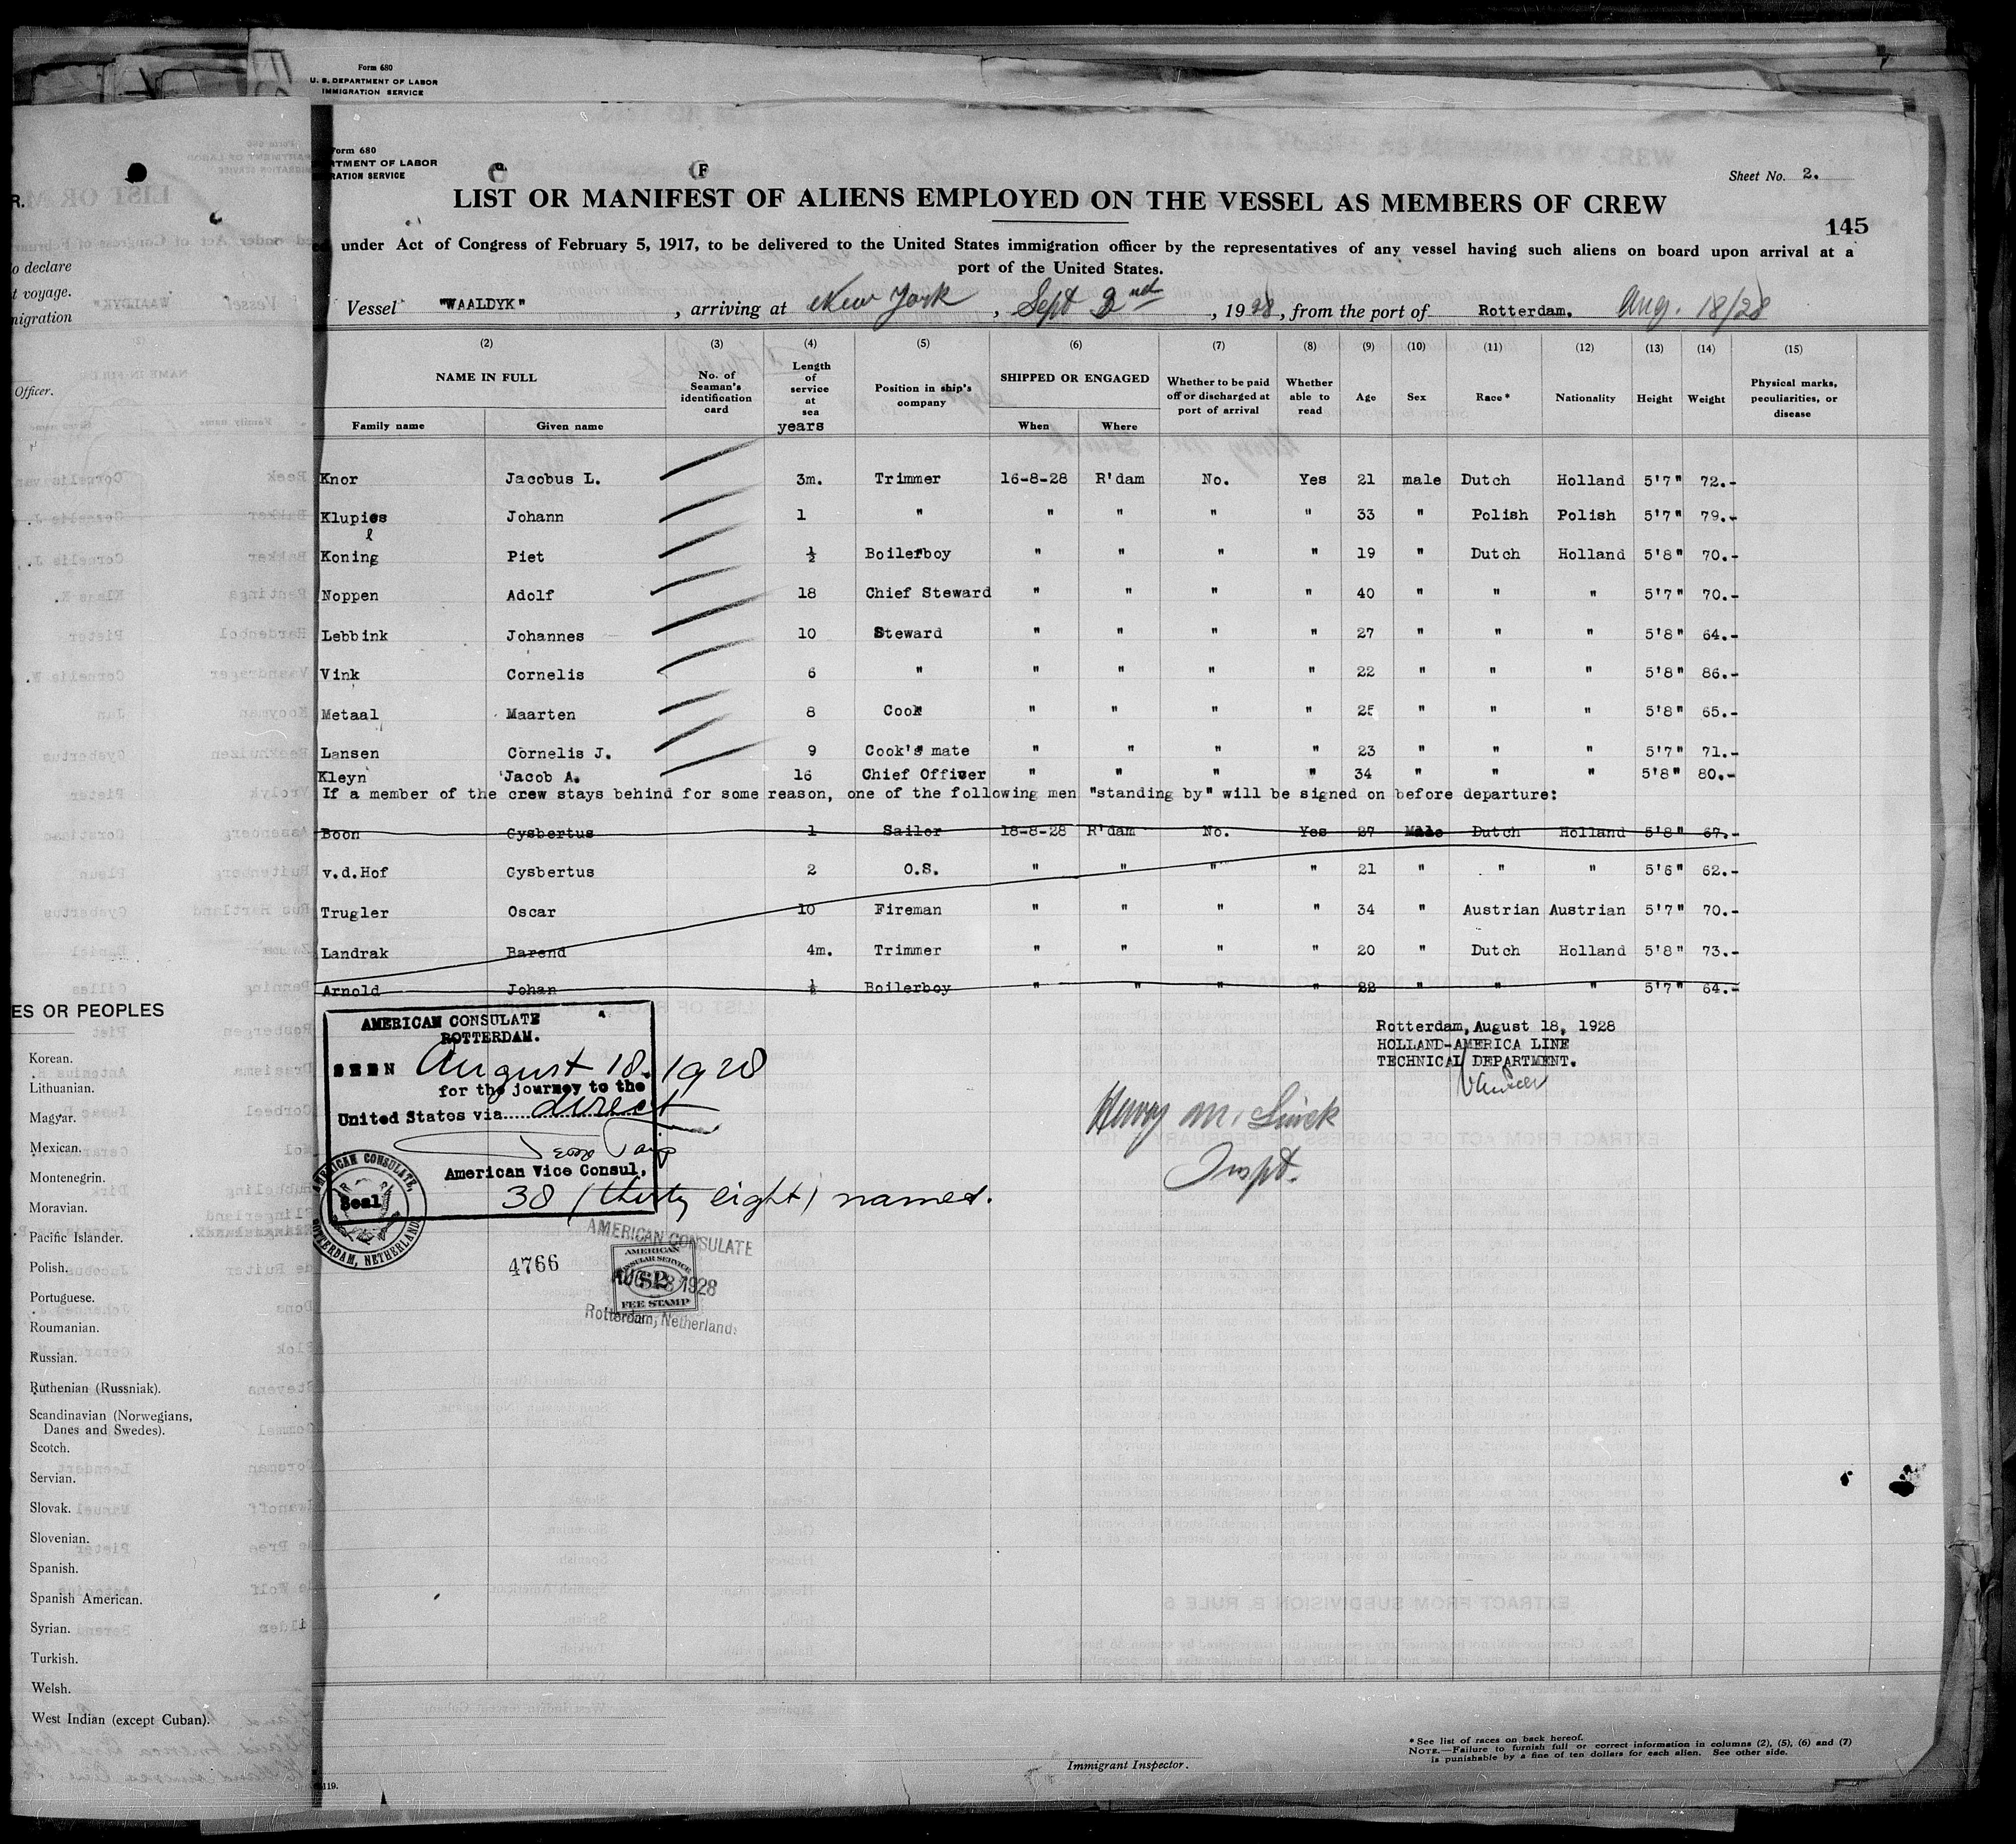 Form 680
U. S. DEPARTMENT OF LABOR
IMMIGRATION SERVICE
Form 680
RTMENT OF LABOR
RATION SERVICE
Sheet No. 2.
LIST OR MANIFEST OF ALIENS EMPLOYED ON THE VESSEL AS MEMBERS OF CREW
145
under Act of Congress of February 5, 1917, to be delivered to the United States immigration officer by the representatives of any vessel having such aliens on board upon arrival at a
port of the United States.
Vessel "WAALDYK", arriving at New York, Sept 2nd, 1928, from the port of Rotterdam. Aug. 18/28
(2) (3) (4) (5) (6) (7) (8) (9) (10) (11) (12) (13) (14) (15)
NAME IN FULL No. of Seaman's identification card Length of service at sea years Position in ship's company SHIPPED OR ENGAGED Whether to be paid off or discharged at port of arrival Whether able to read Age Sex Race* Nationality Height Weight Physical marks, peculiarities, or disease
Family name Given name When Where
Knor Jacobus L. 3m. Trimmer 16-8-28 R'dam No. Yes 21 male Dutch Holland 5'7" 72.-
Klupies Johann 1 " " " " " 33 " Polish Polish 5'7" 79.-
l
Koning Piet ½ Boilerboy " " " " 19 " Dutch Holland 5'8" 70.-
Noppen Adolf 18 Chief Steward " " " " 40 " " " 5'7" 70.-
Lebbink Johannes 10 Steward " " " " 27 " " " 5'8" 64.-
Vink Cornelis 6 " " " " " 22 " " " 5'8" 86.-
Metaal Maarten 8 Cook " " " " 25 " " " 5'8" 65.-
Lansen Cornelis J. 9 Cook's mate " " " " 23 " " " 5'7" 71.-
Kleyn Jacob A. 16 Chief Officer " " " " 34 " " " 5'8" 80.-
If a member of the crew stays behind for some reason, one of the following men "standing by" will be signed on before departure:
Boon Gysbertus 1 Sailor 18-8-28 R'dam No. Yes 27 Male Dutch Holland 5'8" 67.-
v.d.Hof Gysbertus 2 O.S. " " " " 21 " " " 5'6" 62.-
Trugler Oscar 10 Fireman " " " " 34 " Austrian Austrian 5'7" 70.-
Landrak Barend 4m. Trimmer " " " " 20 " Dutch Holland 5'8" 73.-
Arnold Johan ½ Boilerboy " " " " 22 " " " 5'7" 64.-
AMERICAN CONSULATE
ROTTERDAM.
SEEN August 18. 1928
for the journey to the
United States via direct
American Vice Consul,
Seal
38 (thirty eight) names.
AMERICAN CONSULATE,
ROTTERDAM, NETHERLANDS
4766
AMERICAN CONSULATE
AUG 18 1928
Rotterdam, Netherlands
AMERICAN
CONSULAR SERVICE
$2
FEE STAMP
Rotterdam, August 18, 1928
HOLLAND-AMERICA LINE
TECHNICAL DEPARTMENT.
Inspt.
R.
to declare
t voyage.
migration
Officer.
ES OR PEOPLES
Korean.
Lithuanian.
Magyar.
Mexican.
Montenegrin.
Moravian.
Pacific Islander.
Polish.
Portuguese.
Roumanian.
Russian.
Ruthenian (Russniak).
Scandinavian (Norwegians,
Danes and Swedes).
Scotch.
Servian.
Slovak.
Slovenian.
Spanish.
Spanish American.
Syrian.
Turkish.
Welsh.
West Indian (except Cuban).
Immigrant Inspector.
*See list of races on back hereof.
NOTE.—Failure to furnish full or correct information in columns (2), (5), (6) and (7)
is punishable by a fine of ten dollars for each alien. See other side.